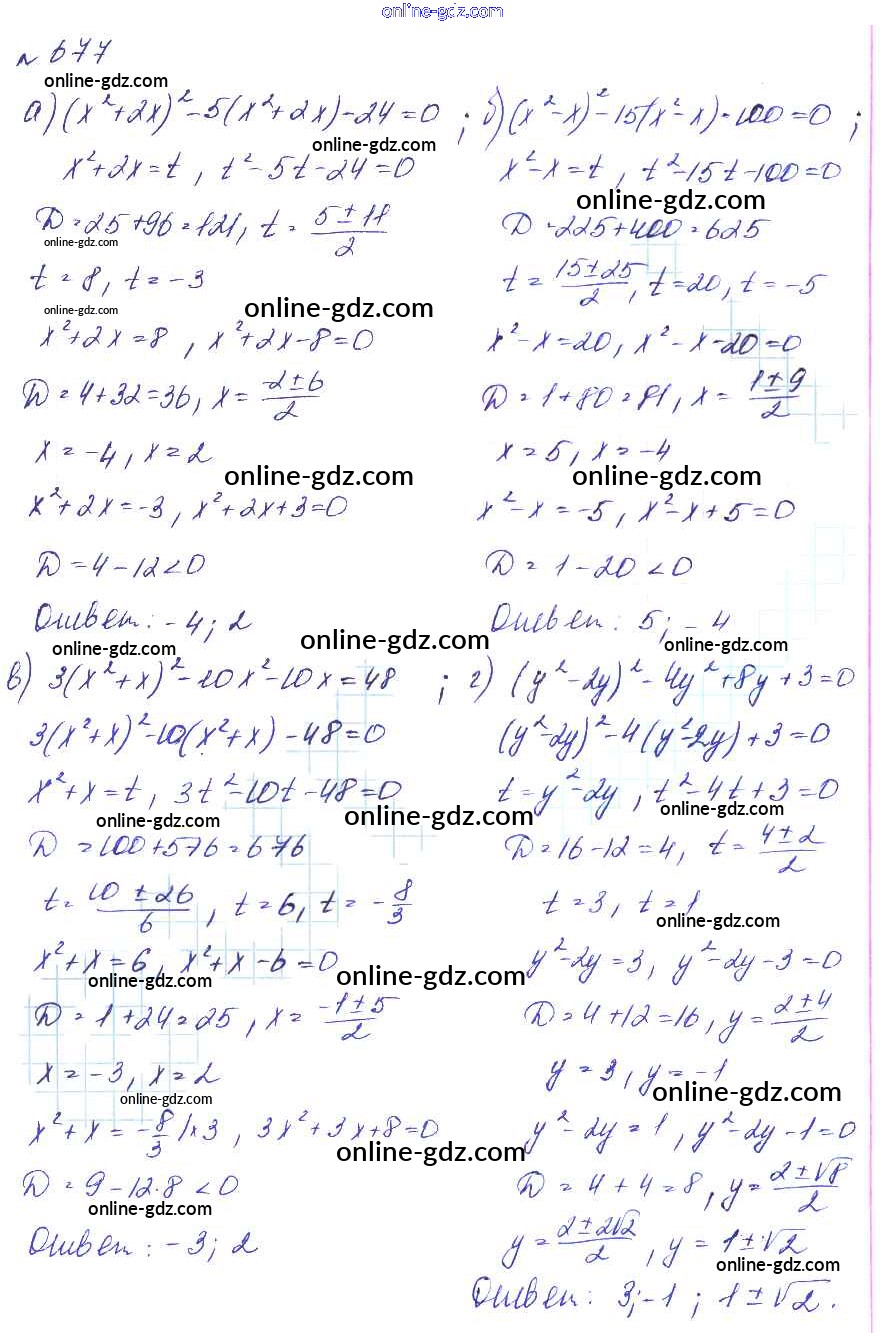 online-gdz.com
№ 677
online-gdz.com
а) (x²+2x)²-5(x²+2x)-24=0 ;
online-gdz.com
x²+2x=t , t²-5t-24=0
D=25+96=121, t= (5±11)/2
online-gdz.com
t=8, t=-3
online-gdz.com
online-gdz.com
x²+2x=8 , x²+2x-8=0
D=4+32=36, x= (-2±6)/2
x=-4, x=2
online-gdz.com
x²+2x=-3, x²+2x+3=0
D=4-12<0
Ответ: -4; 2
online-gdz.com
online-gdz.com
б) (x²-x)²-15(x²-x)-100=0 ;
x²-x=t , t²-15t-100=0
online-gdz.com
D=225+400=625
t= (15±25)/2, t=20, t=-5
x²-x=20, x²-x-20=0
D=1+80=81, x= (1±9)/2
x=5, x=-4
online-gdz.com
x²-x=-5, x²-x+5=0
D=1-20<0
Ответ: 5; -4
online-gdz.com
в) 3(x²+x)²-10x²-10x=48 ;
3(x²+x)²-10(x²+x)-48=0
x²+x=t, 3t²-10t-48=0
online-gdz.com
online-gdz.com
D=100+576=676
t= (10±26)/6, t=6, t=-8/3
x²+x=6, x²+x-6=0
online-gdz.com
online-gdz.com
D=1+24=25, x= (-1±5)/2
x=-3, x=2
online-gdz.com
x²+x=-8/3 |×3 , 3x²+3x+8=0
online-gdz.com
D=9-12·8<0
online-gdz.com
Ответ: -3; 2
г) (y²-2y)²-4y²+8y+3=0
(y²-2y)²-4(y²-2y)+3=0
t=y²-2y, t²-4t+3=0
online-gdz.com
D=16-12=4, t= (4±2)/2
t=3, t=1
online-gdz.com
y²-2y=3, y²-2y-3=0
D=4+12=16, y= (2±4)/2
y=3, y=-1
online-gdz.com
y²-2y=1, y²-2y-1=0
D=4+4=8, y= (2±√8)/2
y= (2±2√2)/2, y=1±√2
online-gdz.com
Ответ: 3; -1; 1±√2.